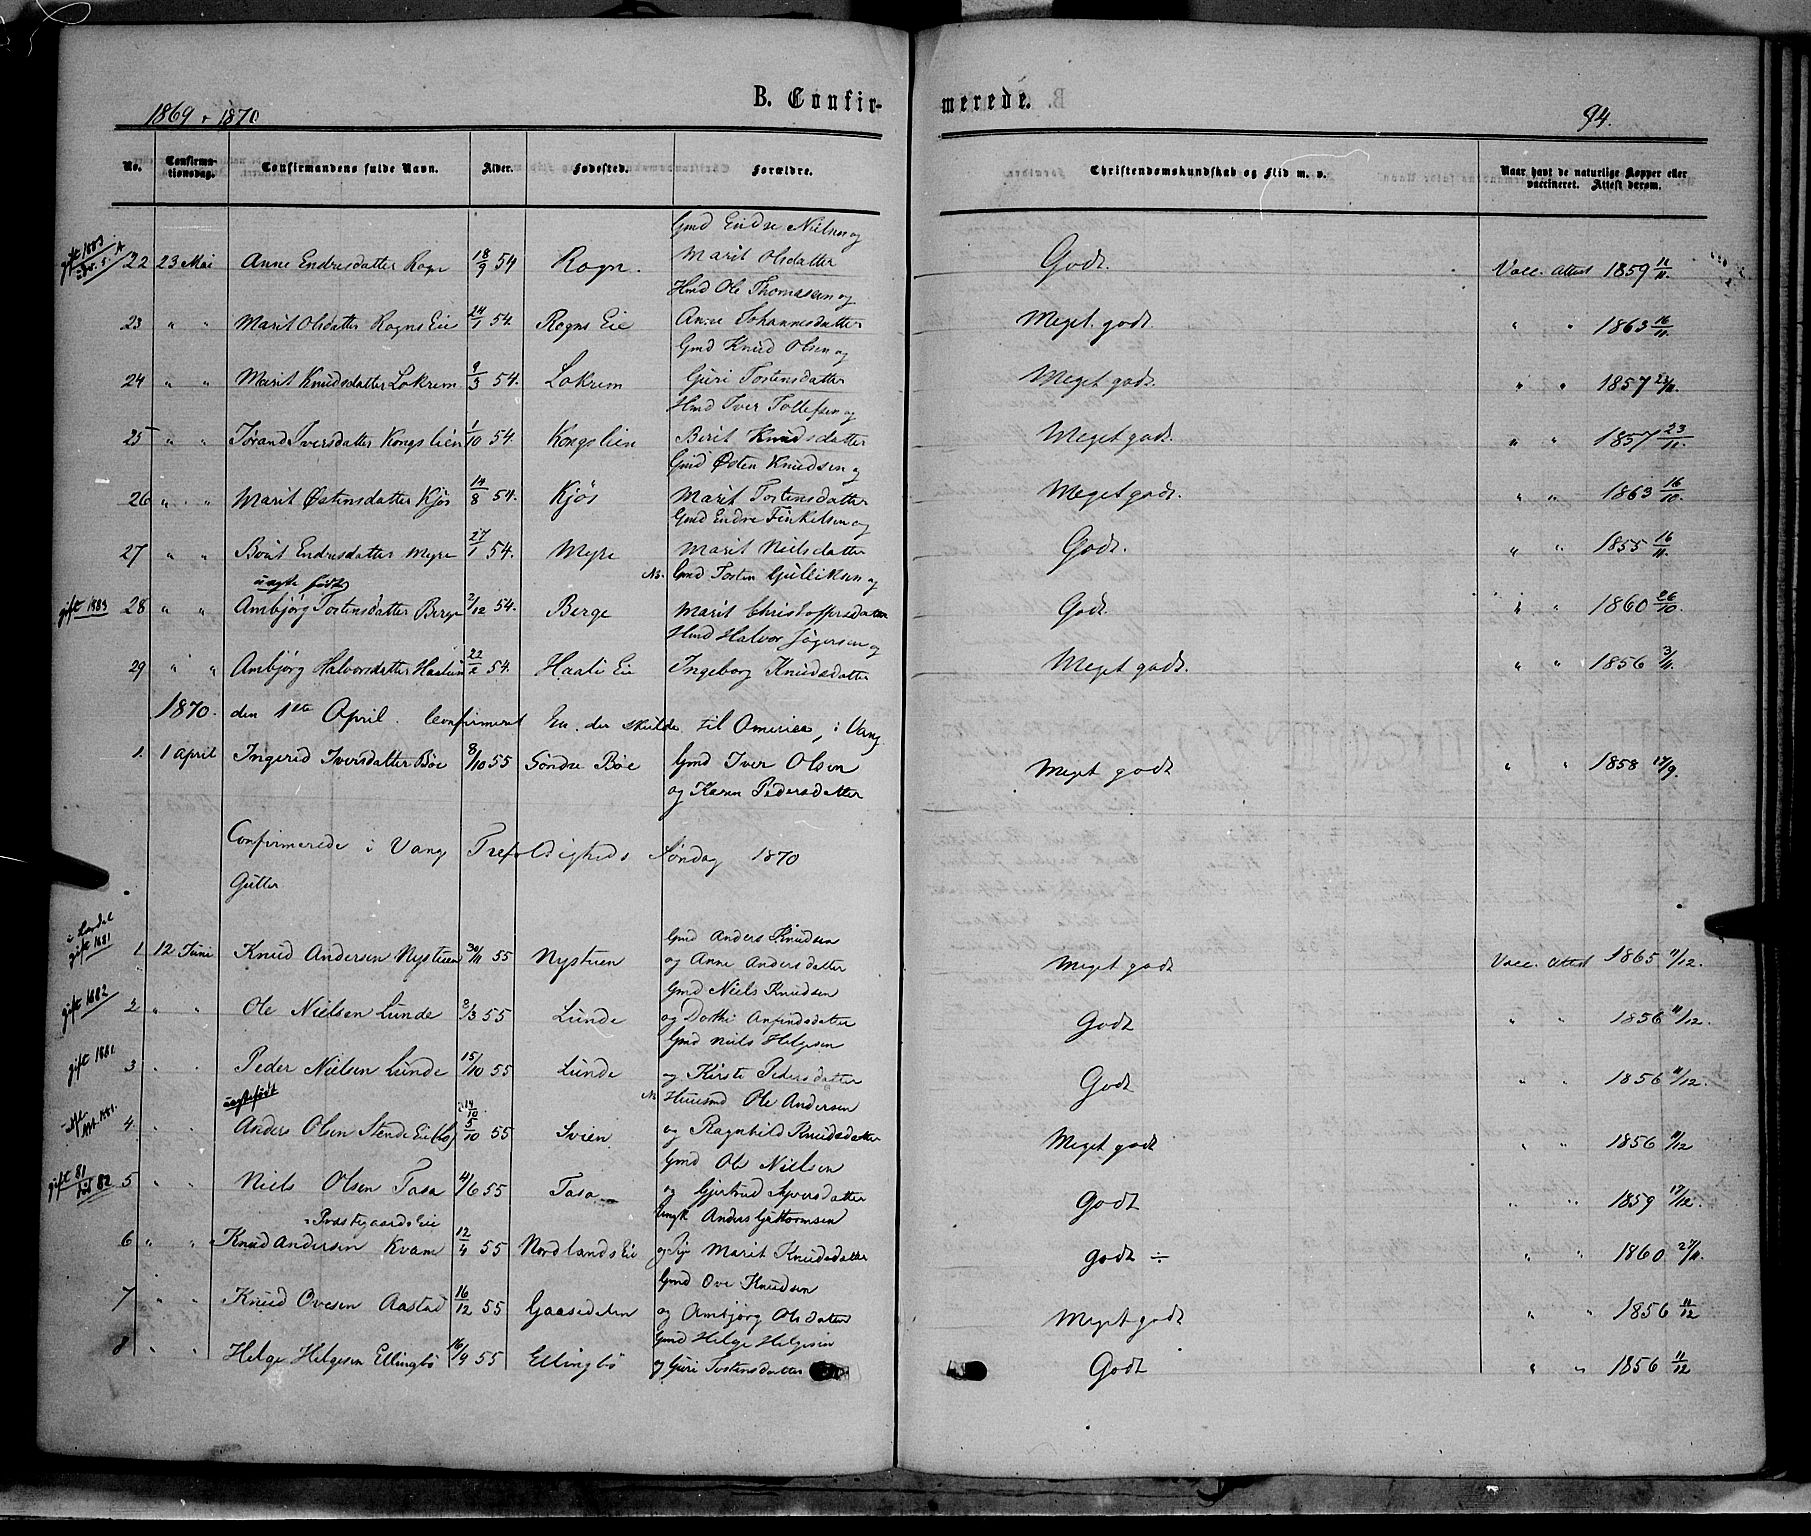 1869 & 1870
B. Confir-
merede.
94.
No.
Confirma-
tionsdag.
Confirmandens fulde Navn.
Alder.
Fødested.
Forældre.
Christendomskundskab og Flid m. v.
Naar havt de naturlige Kopper eller
vaccineret. Attest derom.
Gmd Endre Nielsen og
gift 1883
22 23 Mai Anne Endresdatter Rogn 18/9 54 Rogn. Marit Olsdatter Godt. Vacc. Attest 1859 11/11.
Hmd Ole Thomassen og
23 " " Marit Olsdatter Rogns Eie 24/1 54. Rogns Eie Anne Johannesdatter Meget godt. " " 1863 16/10.
Gmd Knud Olsen og
24 " " Marit Knudsdatter Lokrem 9/3 54. Lokrem Guri Tostensdatter Meget godt. " " 1857 23/11.
Hmd Iver Tollefsen og
25 " " Jørand Iversdatter Kongslien 1/10 54. Kongslien Berit Knudsdatter Meget godt. " " 1857 23/11.
Gmd Østen Knudsen og
26 " " Marit Østensdatter Kjøs 14/8 54. Kjøs Marit Tostensdatter Meget godt. " " 1863 16/10.
Gmd Endre Finkelsen og
27 " " Berit Endresdatter Myre 27/1 54. Myre Marit Nielsdatter Godt. " " 1855 16/11.
uægte født
No. Gmd Tosten Gulliksen og
gift 1883 28 " " Ambjørg Tostensdatter Berge 2/12 54. Berge Marit Christoffersdatter Godt. " " 1860 26/10.
Hmd Halvor Jøgersen og
29 " " Ambjørg Halvorsdatter 54. Haali Eie Ingeborg Knudsdatter Meget godt. " " 1856 3/4.
1870. den 1ste April. Confirmeret En, der skulde til America, i Vang
1. 1 April Ingerid Iversdatter Bøe 8/10 55 Søndre Bøe Gmd Iver Olsen Meget godt " " 1858 17/9.
og Karen Pedersdatter
Confirmerede i Vang Trefoldigheds Søndag 1870
Gutter
i Lærdal
gift 1881
Gmd Anders Knudsen
1. 12 Juni Knud Andersen Nystuen 30/11 55 Nystuen og Anne Andersdatter Meget godt Vacc. Attest 1865 11/12.
Gmd Niels Knudsen
gift 1882 2 " " Ole Nielsen Lunde 3/3 55 Lunde og Dothi Anfindsdatter Godt " " 1856 11/12.
Gmd Niels Helgesen
gift 1881 3 " " Peder Nielsen Lunde 15/10 55 Lunde og Kirsti Pedersdatter Godt " " 1856 11/12.
uægtefødt
No Huusmd Ole Andersen
4. " " Anders Olsen Stende 5/10 55 Svien og Ragnhild Knudsdatter Meget godt " " 1856 11/12
Gmd Ole Nielsen
gift 81
død 82 5 " " Niels Olsen Tasa 11/6 55 Tasa og Gjertrud Syversdatter Godt " " 1859 17/12.
Præstegaards Eie
Ungk Anders Guttormsen
6 " " Knud Andersen Kvam 12/4 55 Nordlands Eie og Pige Marit Knudsdatter godt ÷ " " 1860 27/11.
Gmd Ove Knudsen
7 " " Knud Ovesen Aastad 16/12 55 Gaasedelen og Ambjørg Olsdatter Meget godt " " 1856 11/12
Gmd Helge Helgesen
8 " " Helge Helgesen Ellingbø 16/9 55 Ellingbø og Guri Tostensdatter Godt " " 1856 11/12